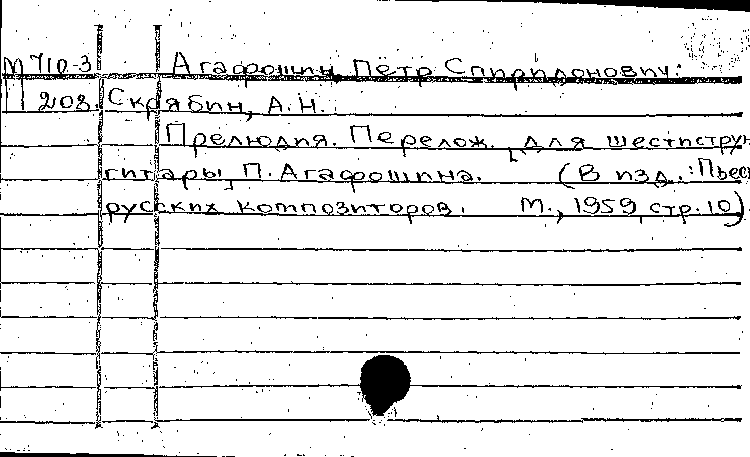 М 710-3 Агафошин, Пётр Спиридонович:
208. Скрябин, А.Н.
Прелюдия. Перелож. для шестистру
гитары П. Агафошина. (В изд.: Пьес
русских композиторов. М., 1959, стр. 10)